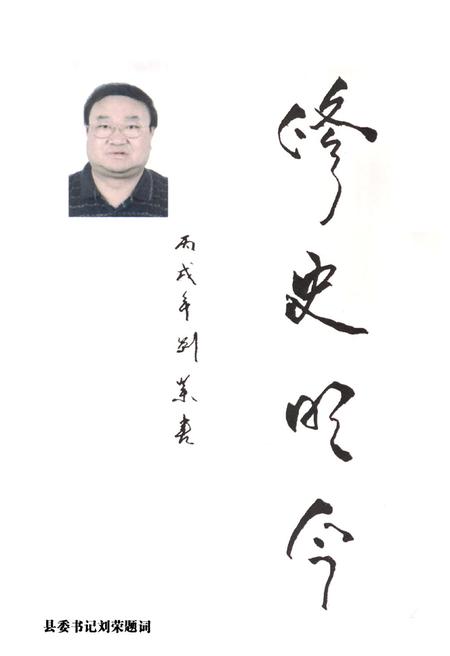 修史明今
丙戌年刘荣书
县委书记刘荣题词